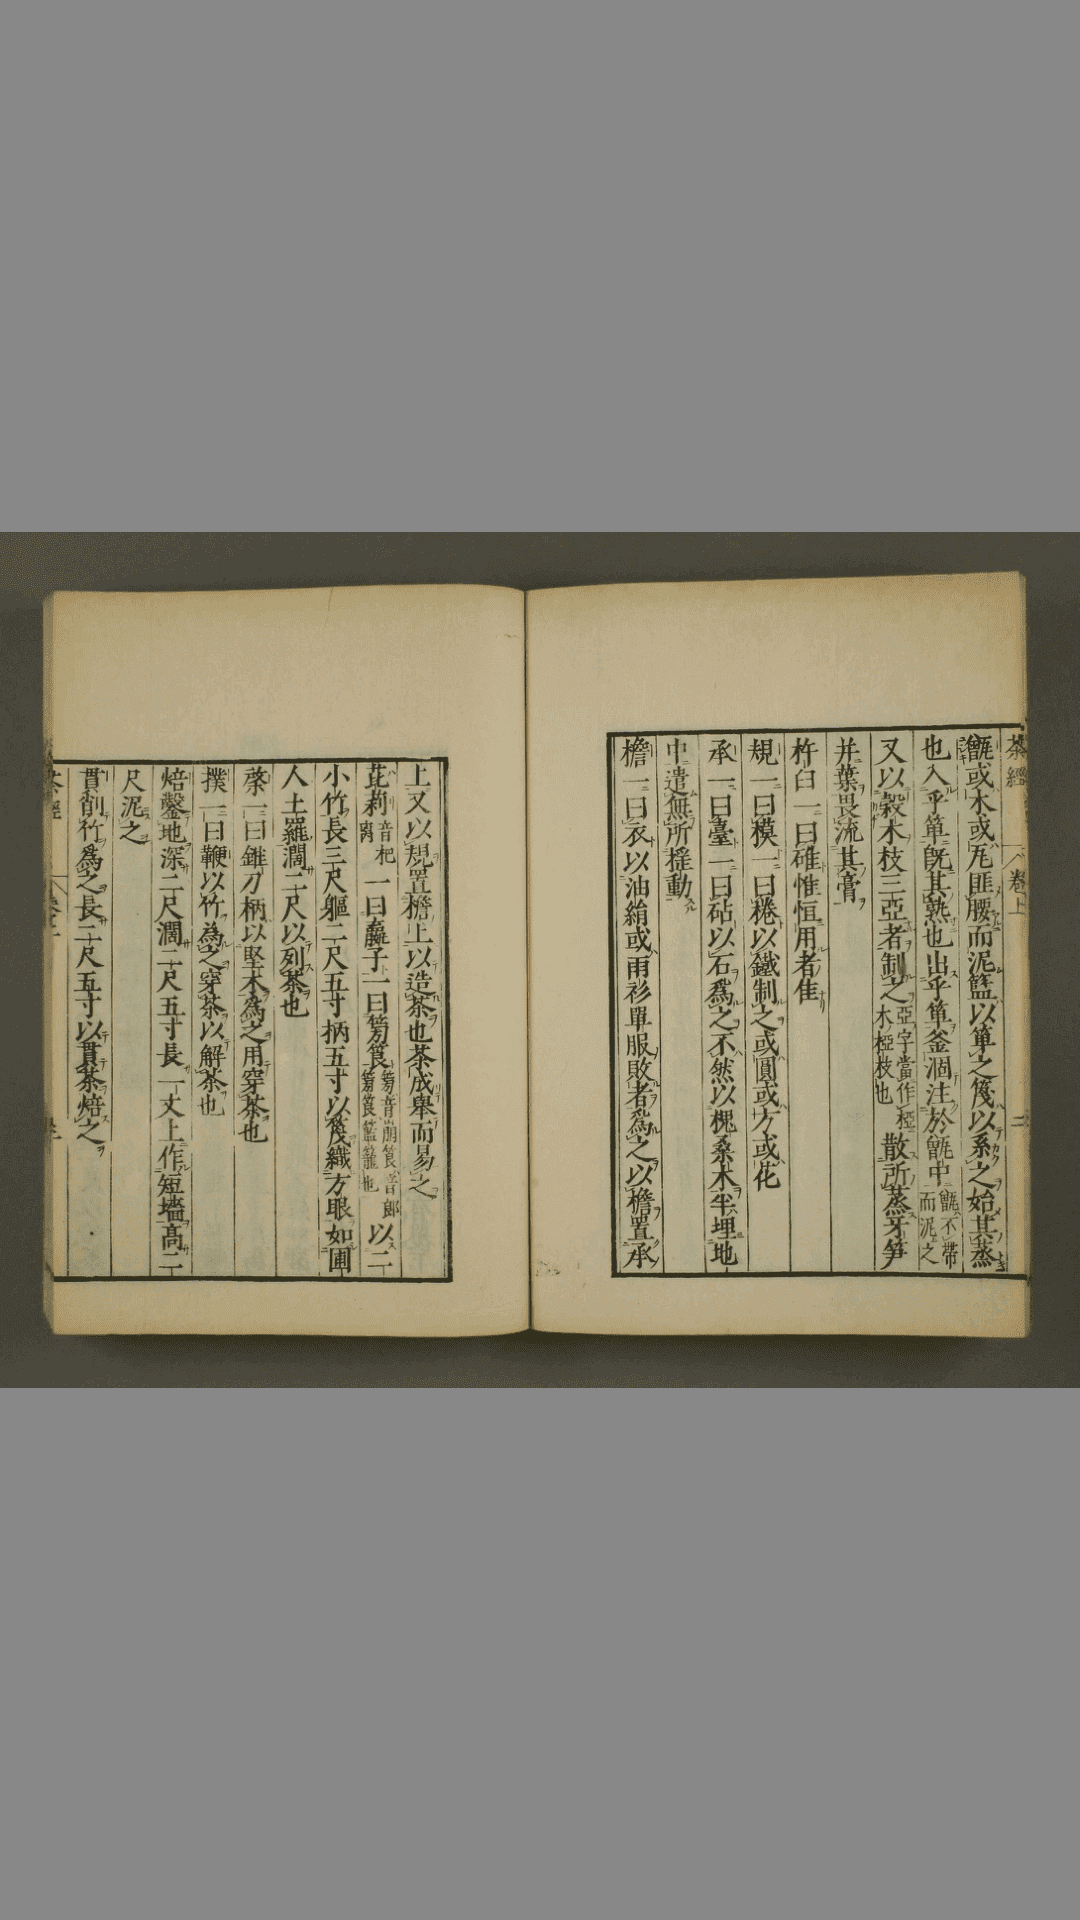 茶經 卷上 二
甑或木或瓦匪腰而泥籃以箄之篾以系之始其蒸
也入乎箄既其熟也出乎箄釜涸注於甑中甑不帶而泥之
又以榖木枝三亞者制之亞字當作椏木椏枝也散所蒸牙笋
并葉畏流其膏
杵臼一曰碓惟恒用者隹
規一曰模一曰棬以鐵制之或圓或方或花
承一曰臺一曰砧以石爲之不然以槐桑木半埋地
中遣無所揺動
檐一曰衣以油絹或雨衫單服敗者爲之以檐置承
上又以規置檐上以造茶也茶成舉而易之
芘莉音杷离一曰羸子一曰篣筤篣音崩筤音郎篣筤籃籠也以二
小竹長三尺軀二尺五寸柄五寸以篾織方眼如圃
人土羅濶二尺以列茶也
棨一曰錐刀柄以堅木爲之用穿茶也
撲一曰鞭以竹爲之穿茶以解茶也
焙鑿地深二尺濶二尺五寸長一丈上作短墻高二
尺泥之
貫削竹爲之長二尺五寸以貫茶焙之
茶經